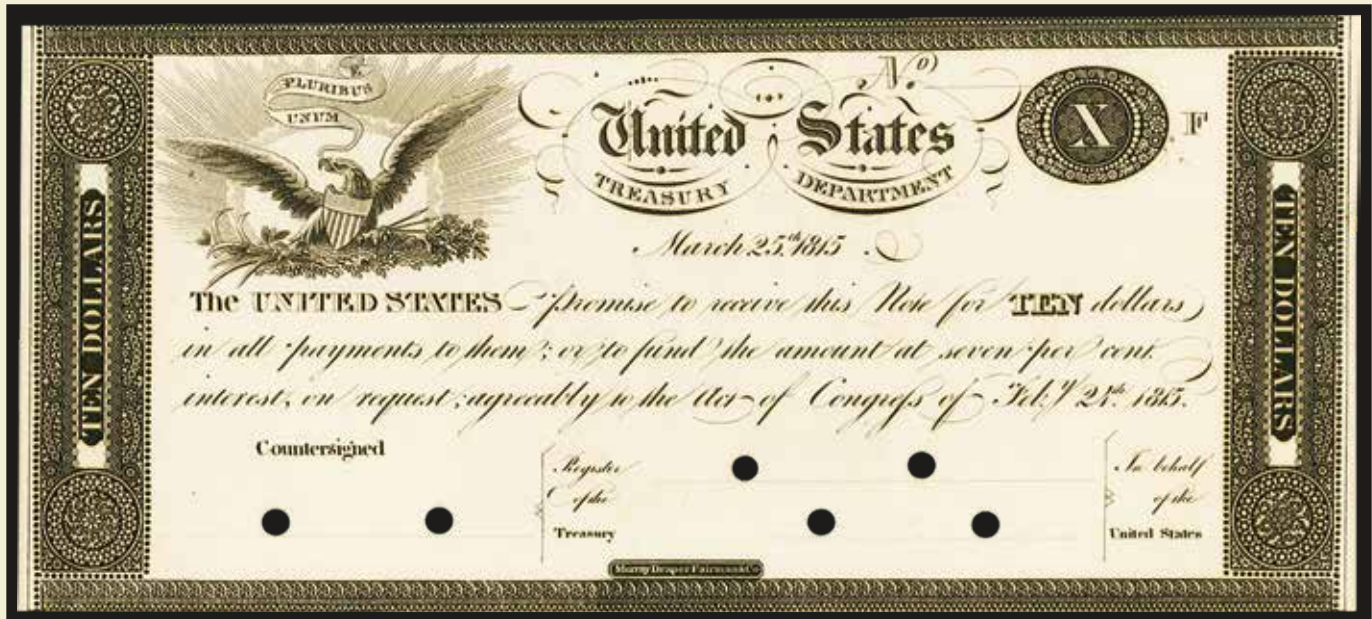 TEN DOLLARS
E
PLURIBUS
UNUM
No.
United States
TREASURY DEPARTMENT
X F
March 25th 1815
The UNITED STATES Promise to receive this Note for TEN dollars
in all payments to them; or to fund the amount at seven per cent
interest, on request; agreeably to the Act of Congreſs of Feb.y 24th. 1815.
Countersigned
Register
of the
Treasury
In behalf
of the
United States
Murray Draper Fairman & Co
TEN DOLLARS